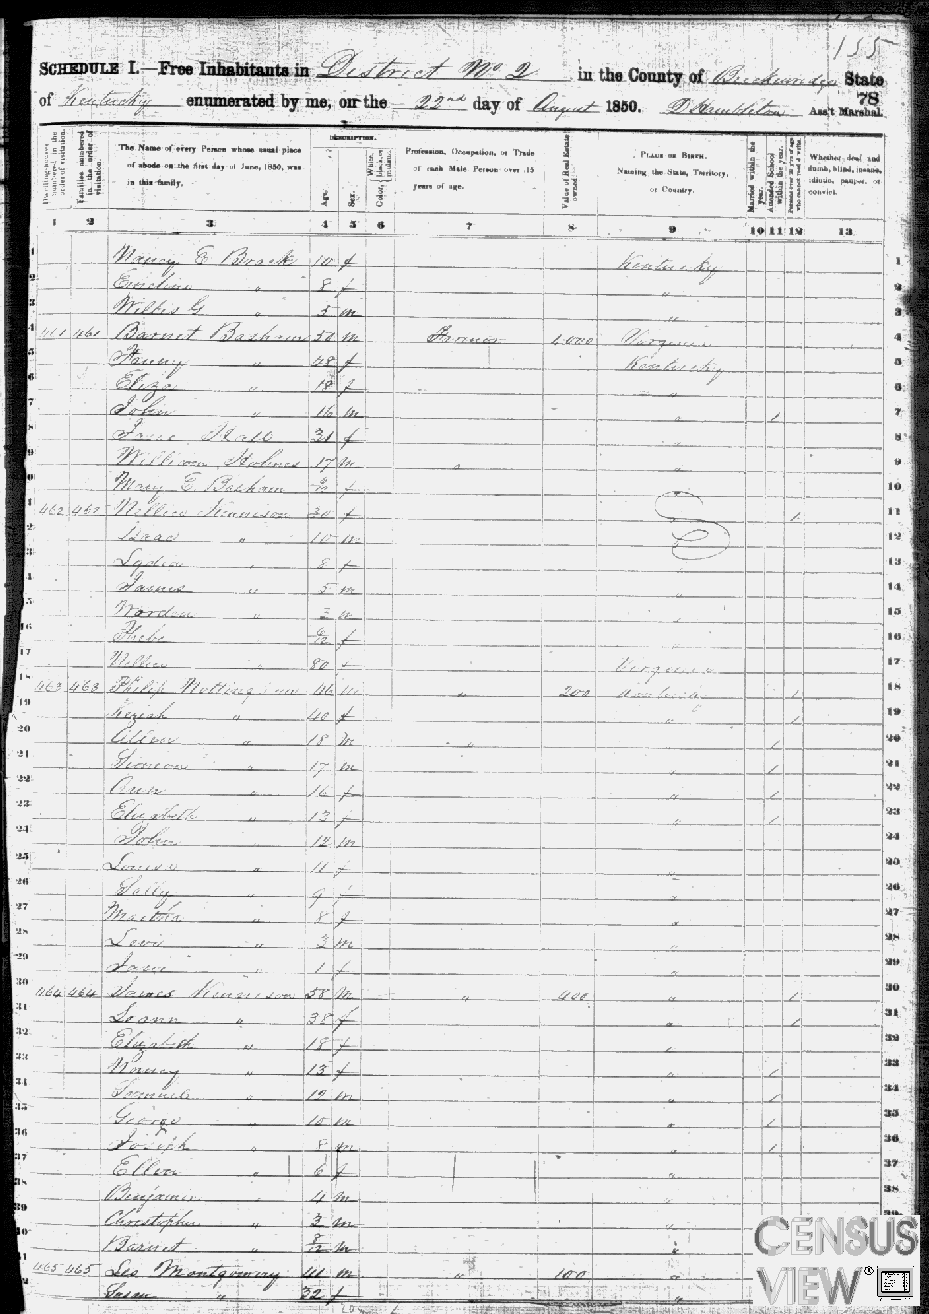 155
SCHEDULE I.—Free Inhabitants in District No 2 in the County of Breckenridge State
of Kentucky enumerated by me, on the 22nd day of August 1850. Ass't Marshal.
78
DESCRIPTION.
Dwelling-houses numbered in the order of visitation.
Families numbered in the order of visitation.
The Name of every Person whose usual place of abode on the first day of June, 1850, was in this family.
Age.
Sex.
White, black, or mulatto. Color,
Profession, Occupation, or Trade of each Male Person over 15 years of age.
Value of Real Estate owned.
PLACE OF BIRTH. Naming the State, Territory, or Country.
Married within the year.
Attended School within the year.
Persons over 20 y'rs of age who cannot read & write.
Whether deaf and dumb, blind, insane, idiotic, pauper, or convict.
1 2 3 4 5 6 7 8 9 10 11 12 13
1 Nancy E 10 f Kentucky 1
2 Emeline " 8 f " 2
3 Willis G " 5 m " 3
4 461 461 Barnet Basham 50 m Farmer 1,000 Virginia 4
5 Fanny " 48 f Kentucky 5
6 Eliza " 18 f " 6
7 John " 16 m " 1 7
8 Jane Hall 31 f " 8
9 William Holmes 17 m " " 9
10 Mary E Basham f 10
11 462 462 Kennison 30 f 1 11
12 Isaac " 10 m 12
13 Lydia " 8 f " 13
14 James " 5 m " 14
15 " m " 15
16 Phebe f " 16
17 80 f Virginia 17
18 463 463 Philip Nottingham 46 m " 200 Kentucky 1 18
19 Keziah " 40 f " 1 19
20 " 18 m " 1 20
21 Simeon " 17 m " 1 21
22 Ann " 16 f " 1 22
23 Elizabeth " 13 f " 1 23
24 John 12 m 24
25 Louisa " 11 f " 25
26 Sally " 9 f " 26
27 Martha " 8 f " 27
28 Levi " 3 m " 28
29 Jane " 1 f " 29
30 464 464 James Kennison 58 m " 400 " 1 30
31 Leann " 38 f " 1 31
32 Elizabeth " 18 f " 32
33 Nancy " 13 f " 1 33
34 Samuel " 12 m " 1 34
35 George " 10 m " 1 35
36 Joseph " 8 m " 1 36
37 Ellen " 6 f " 37
38 Benjamin " 4 m " 38
39 Christopher " 3 m " 39
40 Barnet " m "
41 465 465 Montgomery 41 m " 100 "
Susan " 32 f
CENSUS
VIEW®